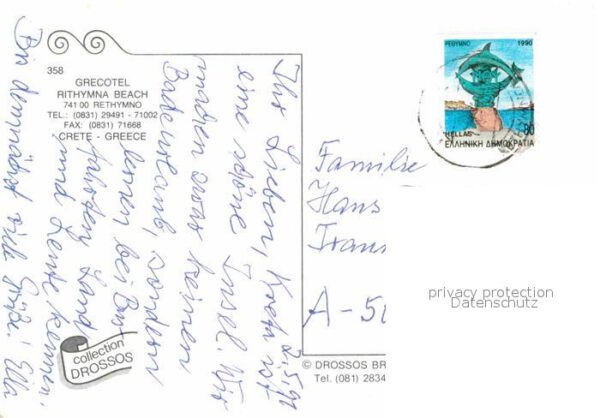 358
GRECOTEL
RITHYMNA BEACH
741 00 RETHYMNO
TEL.: (0831) 29491 - 71002
FAX: (0831) 71668
CRETE - GREECE
2.5.91
Ihr Lieben, Kreta ist
eine schöne Insel. Wir
machen zwar keinen
Badeurlaub, sondern
lernen bei Bus
fahrten Land
und Leute kennen.
Bis demnächst viele Grüße! Ella
collection
DROSSOS
© DROSSOS BR
Tel. (081) 2834
ΡΕΘΥΜΝΟ 1990
80
HELLAS
ΕΛΛΗΝΙΚΗ ΔΗΜΟΚΡΑΤΙΑ
Familie
Hans
A-50
privacy protection
Datenschutz